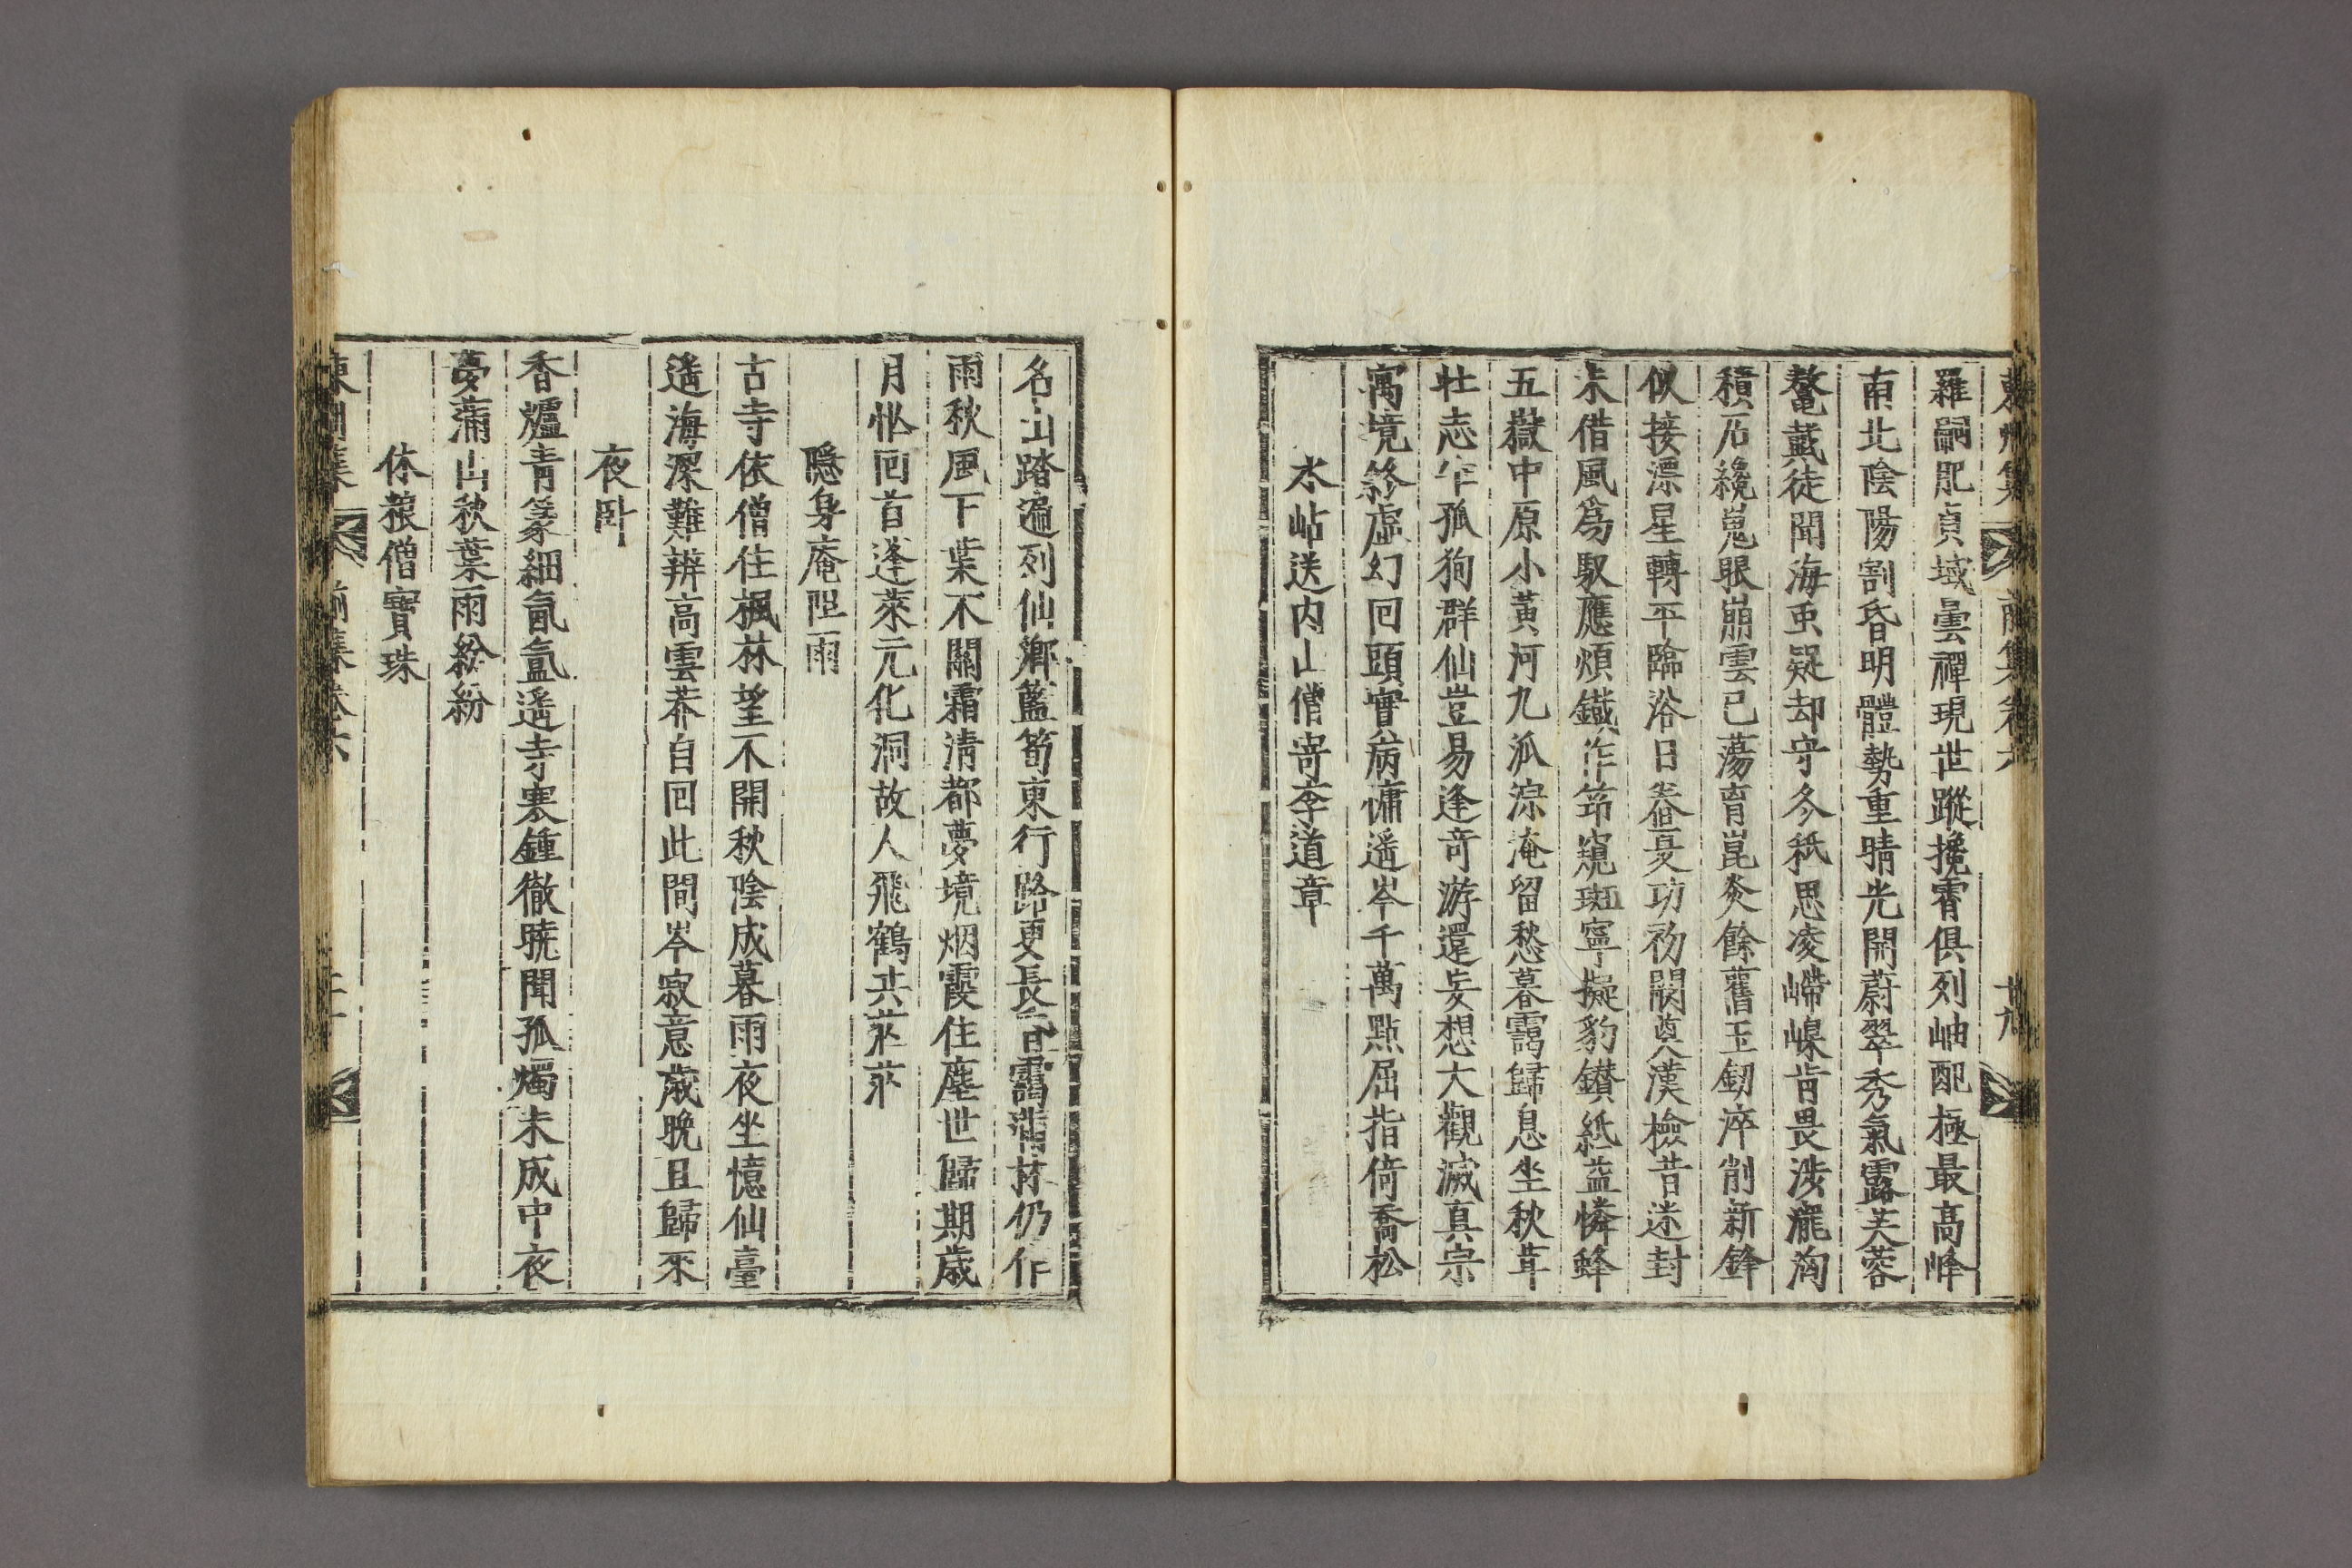 羅嗣毗貞域曇禪現世蹤搀霄俱列岫配極最高峰
南北陰陽割昏明體勢重晴光開蔚翠秀氣露芙蓉
鰲戴徒聞海䖝疑却守冬秖思凌嶗嵲肯畏涉瀧洶
積石纔嵬眼崩雲已蕩胷崑炎餘舊玉劒淬削新鋒
似接漂星轉平臨浴日舂夏功初闕奠漢檢昔迷封
未借風爲馭應煩鐵作笻窺斑寧擬豹鑚紙益憐蜂
五嶽中原小黃河九派淙淹留愁暮靄歸息坐秋茸
壯志乍孤狥群仙豈易逢竒游還妄想大觀滅真宗
寓境終虛幻回頭實病慵遙岑千萬點屈指倚喬松
水岾送内山僧寄李道章
名山踏遍列仙鄕籃筍東行路更長 靄滿林仍作
雨秋風下葉不關霜淸都夢境烟霞住塵世歸期歲
月忙回首蓬萊元化洞故人飛鶴共茫茫
隱身庵阻雨
古寺依僧住楓林望不開秋陰成暮雨夜坐憶仙臺
遙海深難辨高雲莽自回此間岑寂意歲晩且歸來
夜卧
香爐靑篆細氤氳遙寺寒鍾徹曉聞孤燭未成中夜
夢蒲山秋葉雨紛紛
休粮僧寶珠
東州集 前集卷六